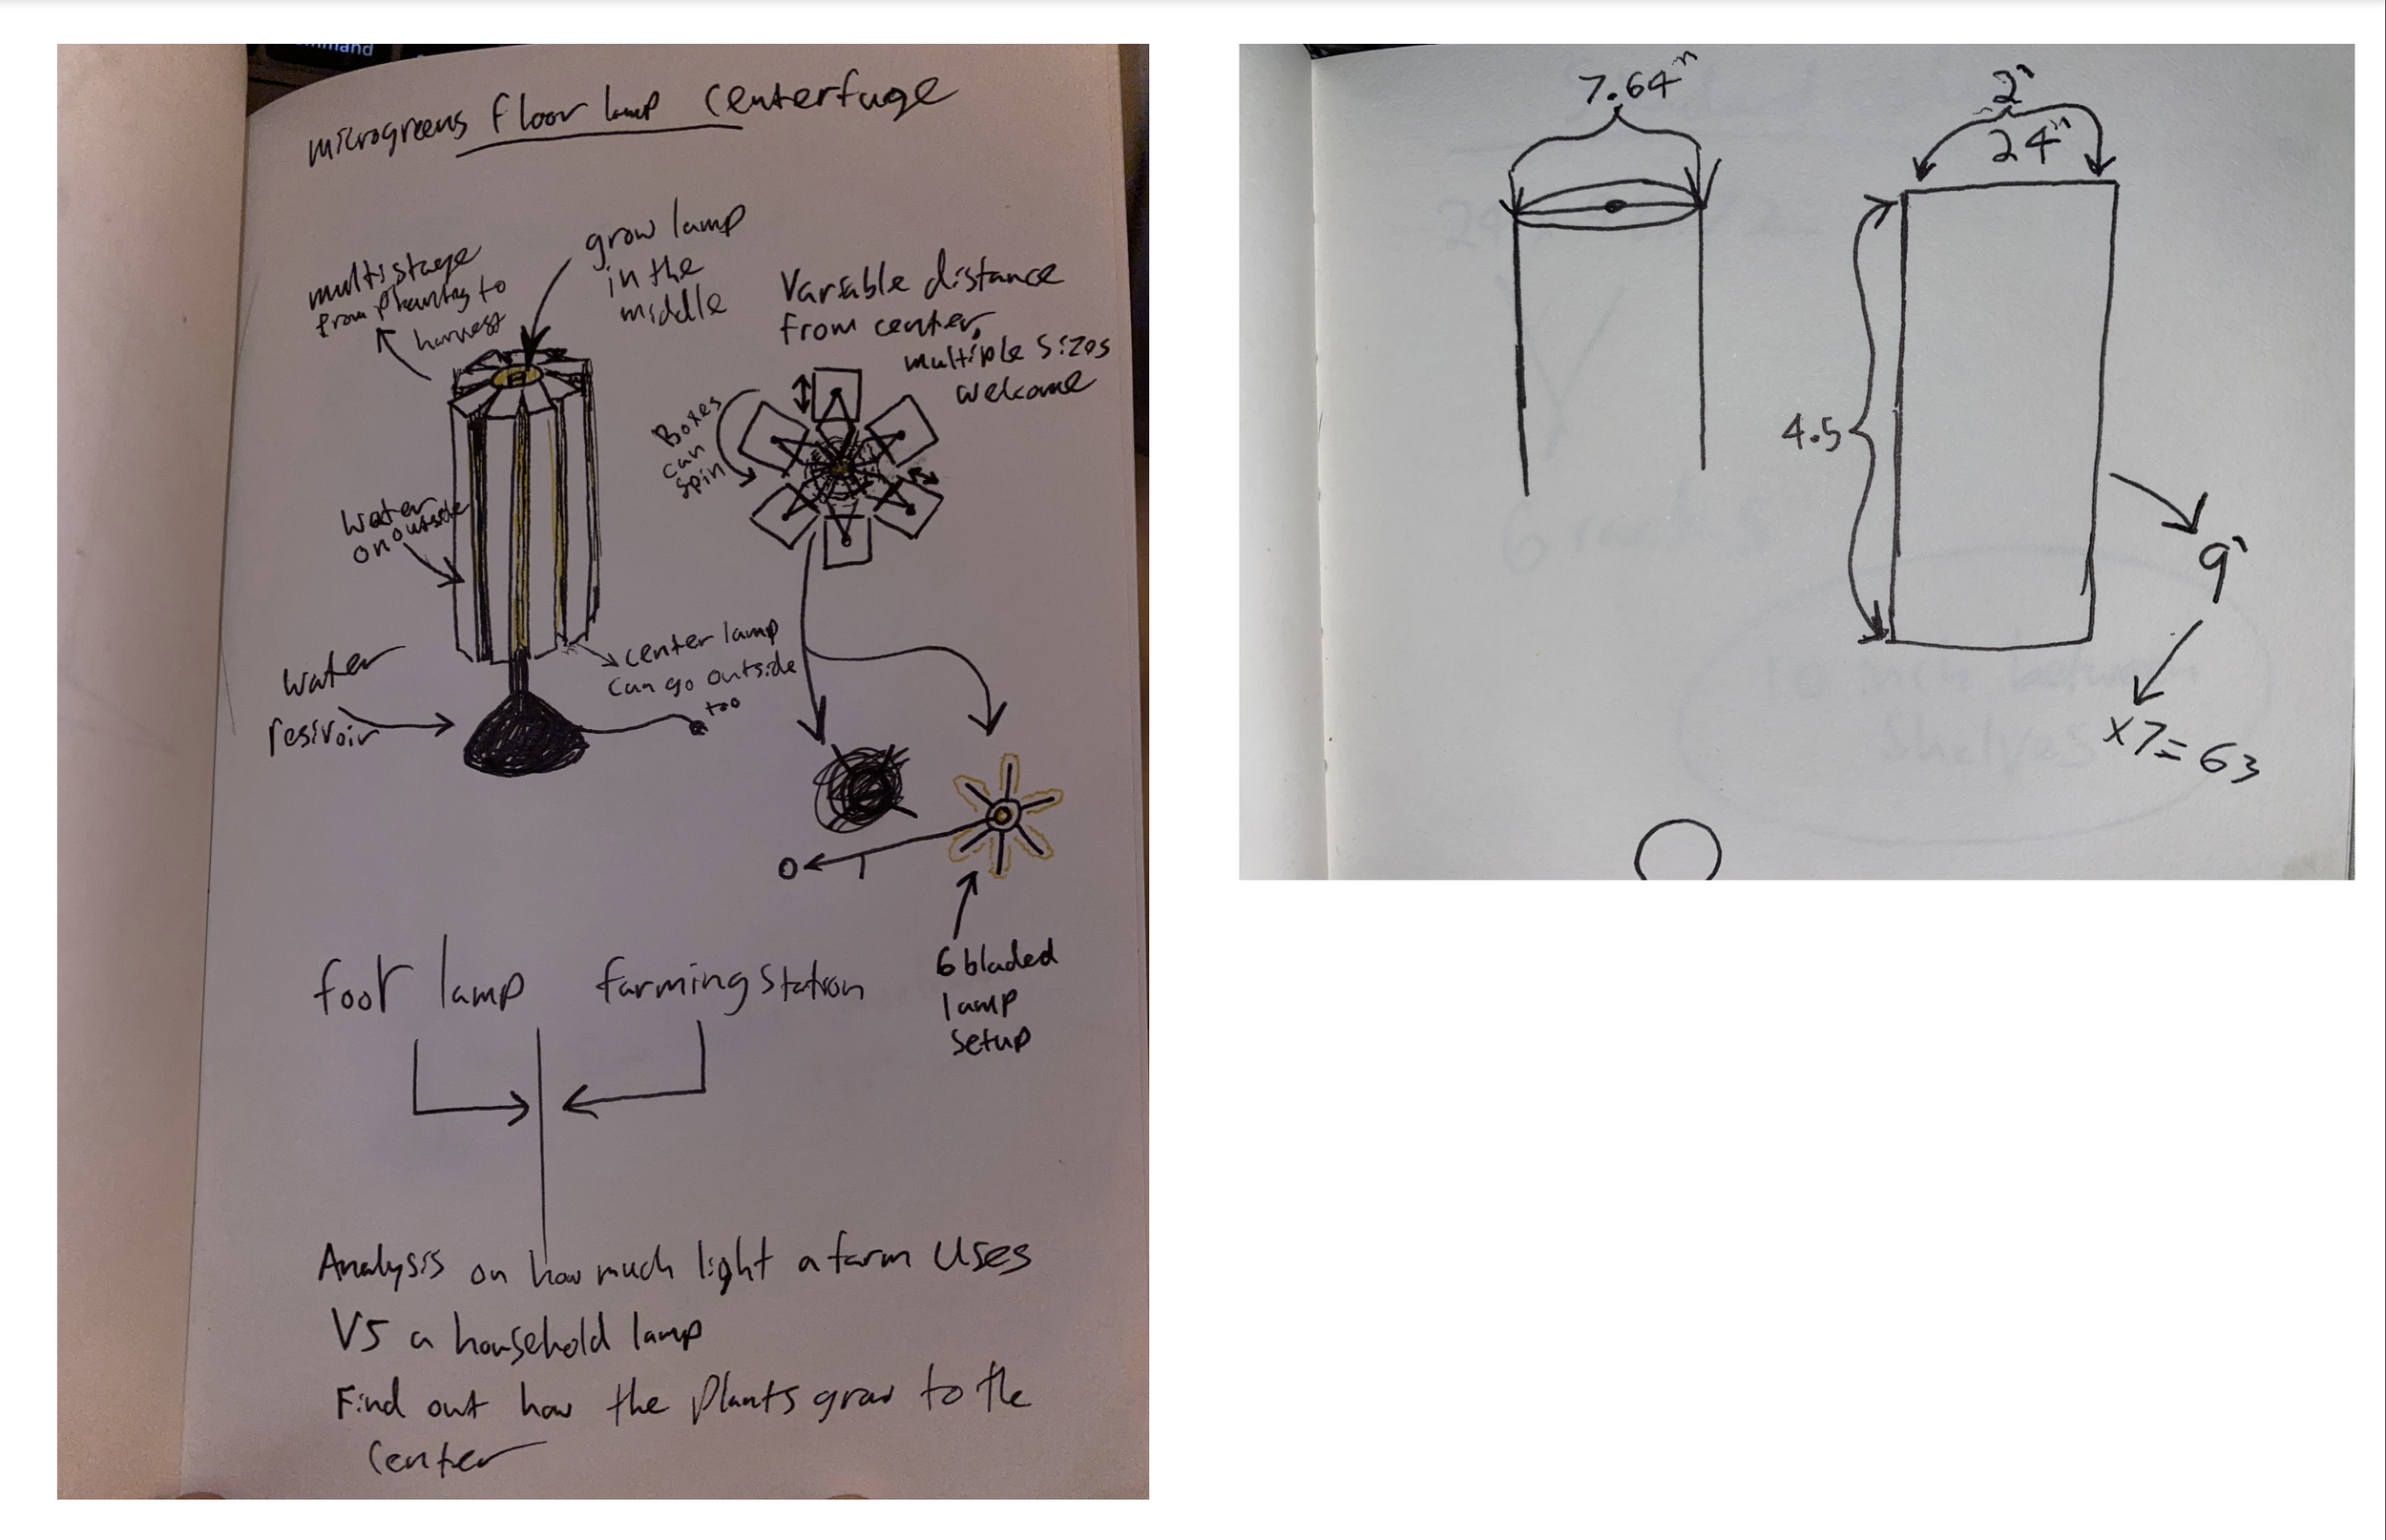 mmand
microgreens floor lamp centerfuge
grow lamp
in the
middle
multistage
from planting to
harvest
Variable distance
from center,
multiple sizes
welcome
Boxes
can
spin
Water
on outside
center lamp
can go outside
too
water
resivoir
6 bladed
lamp
setup
foot lamp farming station
Analysis on how much light a farm uses
VS a household lamp
Find out how the plants grow to the
center
7.64"
2'
24"
4.5
9'
x7=63
6 racks
10 inch between
shelves